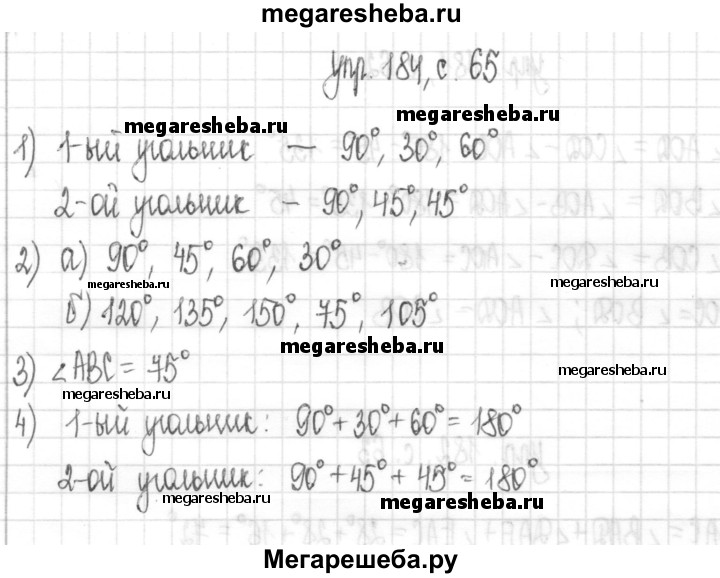 megaresheba.ru
упр. 184, с. 65
megaresheba.ru
megaresheba.ru
1) 1-ый угольник — 90°, 30°, 60°
2-ой угольник – 90°, 45°, 45°
2) а) 90°, 45°, 60°, 30°
megaresheba.ru
megaresheba.ru
б) 120°, 135°, 150°, 75°, 105°
megaresheba.ru
3) ∠ABC = 75°
megaresheba.ru
megaresheba.ru
4) 1-ый угольник: 90° + 30° + 60° = 180°
2-ой угольник: 90° + 45° + 45° = 180°
megaresheba.ru
megaresheba.ru
Мегарешеба.ру